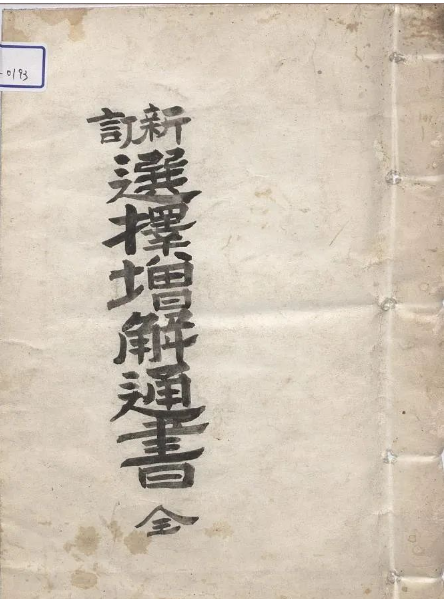 -0193
新訂
選擇增解通書
全